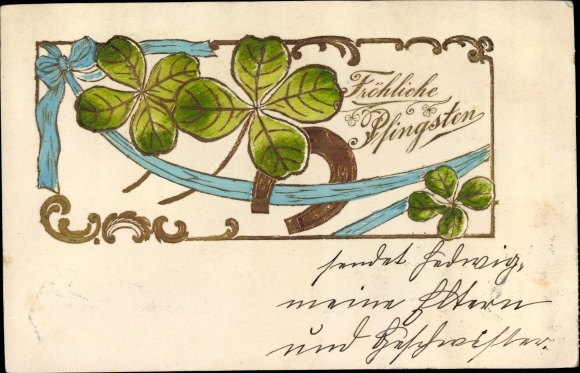 Fröhliche
Pfingsten
sendet Hedwig,
meine Eltern
und Geschwister.